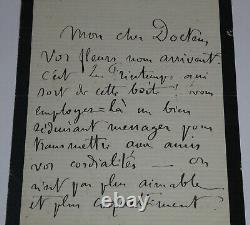 Mon cher Docteur,
Vos fleurs nous arrivent.
C'est le Printemps qui
sort de cette boîte ! vous
employez là un bien
séduisant messager pour
transmettre aux amis
vos cordialités — on
n'est pas plus aimable
et plus
picclick.com